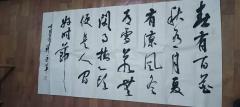 春有百花
秋有月夏
有凉风冬
有雪若无
闲事挂心头
便是人间
好时节